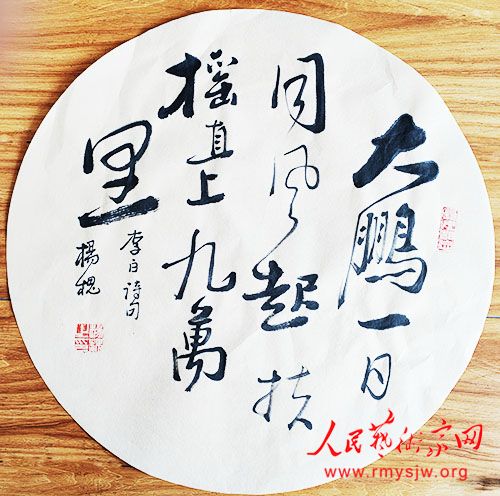 大鵬一日
同风起扶
摇直上九萬
里
李白诗句
楊槐
人民藝術家网
www.rmysjw.org